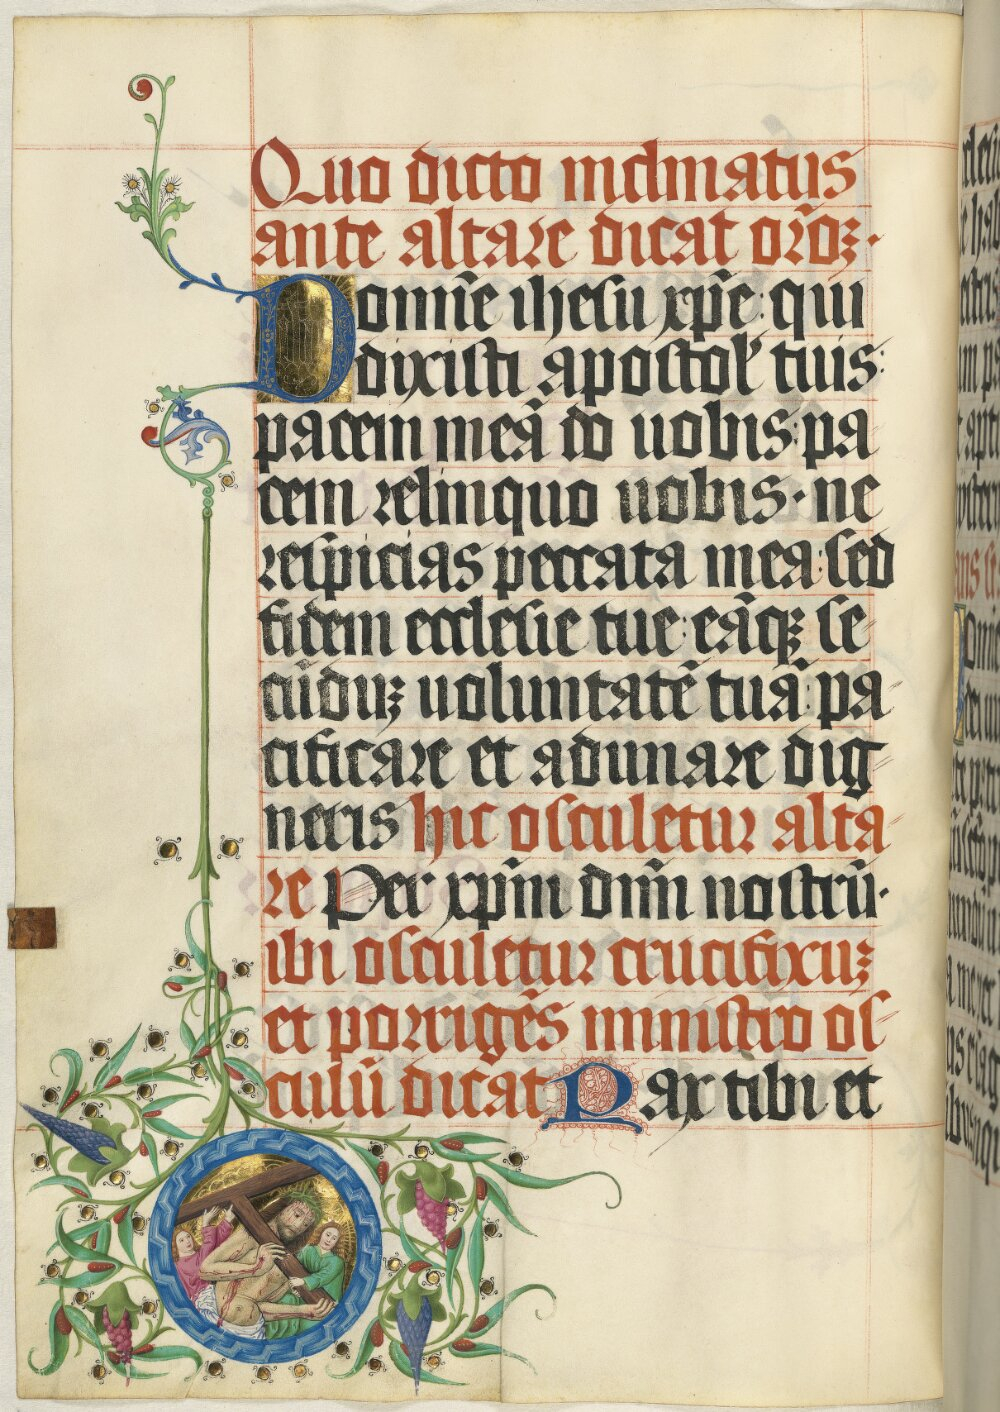 Quo dicto inclinatus
ante altare dicat or̄oꝫ·
Domīe ihesu xp̄e: qui
dixisti apostol' tuis:
pacem meā do uobis: pa
cem relinquo uobis· ne
respicias peccata mea: sed
fidem ecclesie tue: eāqꝫ se
cūduꝫ uoluntatē tuā: pa
cificare et adunare dig
neris hic osculetur alta
re Per xp̄m dn̄m nostrū·
ibi osculetur crucifixuꝫ
et porrigēs ministro os
culū dicat Pax tibi et